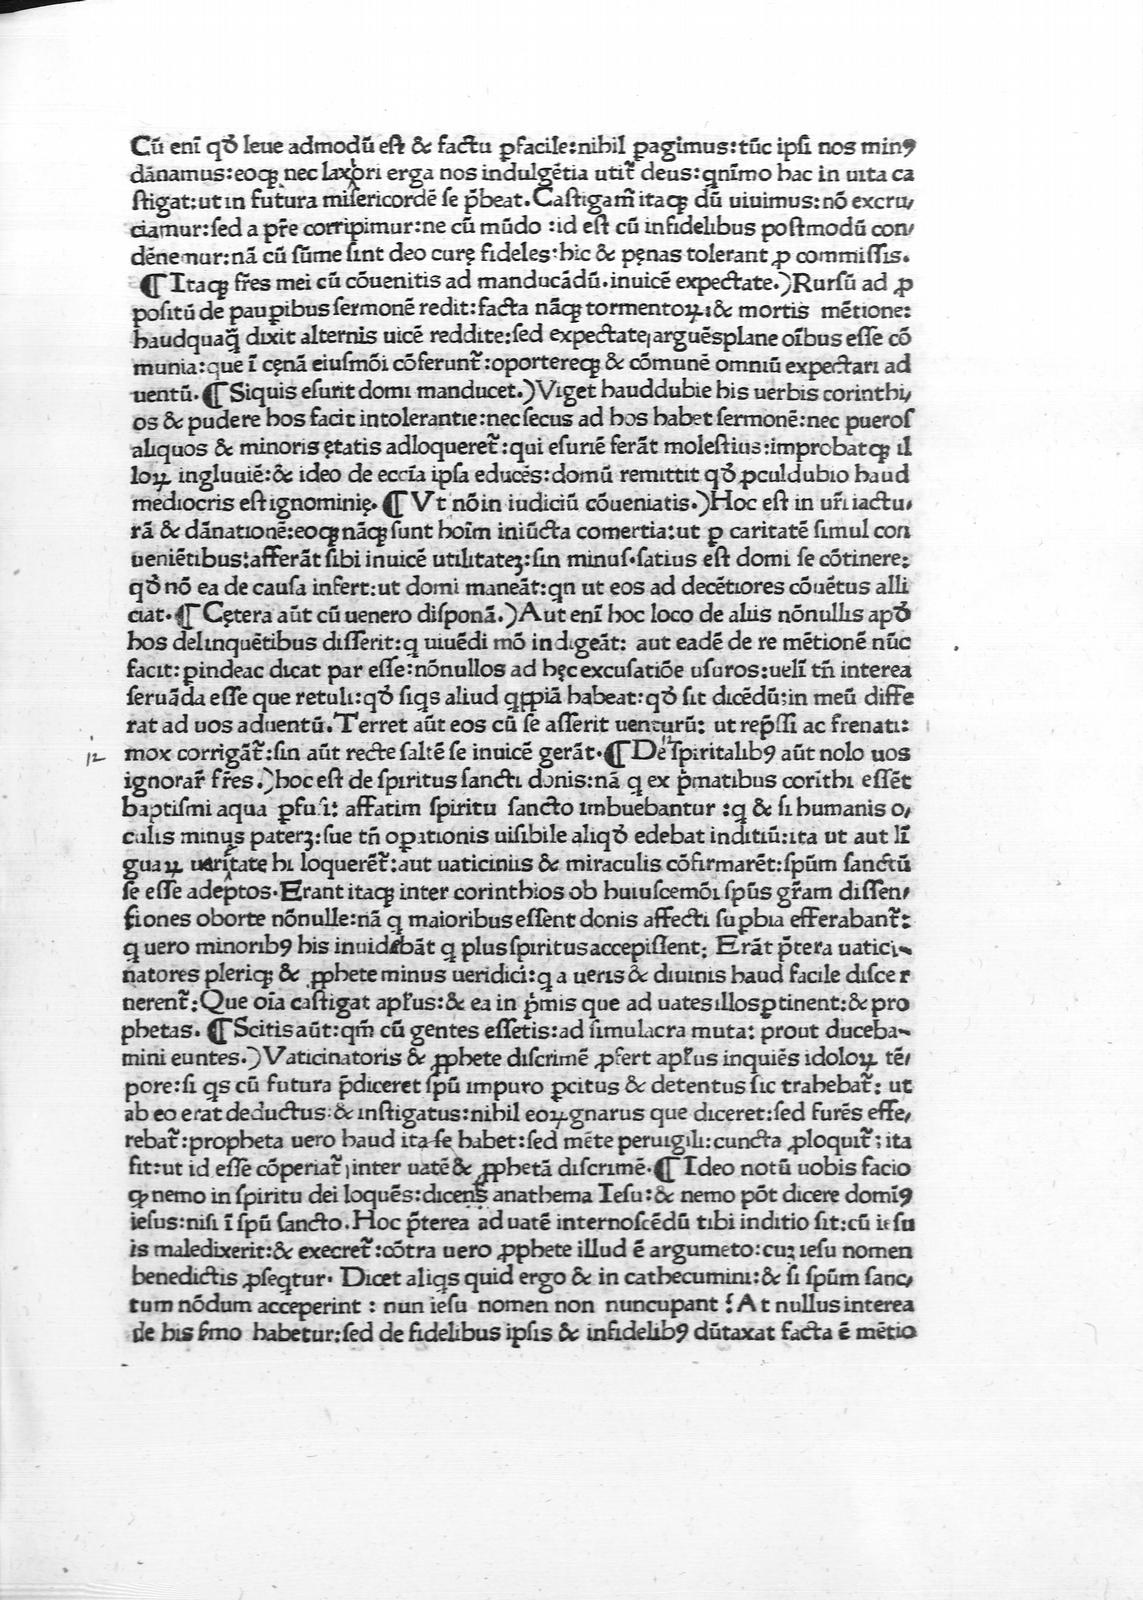 Cū enī qđ leue admodū eſt & factu ꝑfacile:nihil ꝑagimus:tūc ipſi nos minꝰ
dānamus:eoqꝫ nec laxiori erga nos indulgētia utit̃ deus:qnīmo hac in uita ca
ſtigat:ut in futura miſericordē ſe p̄beat.Caſtigam̄ itaqꝫ dū uiuimus:nō excru/
ciamur:ſed a pr̄e corripimur:ne cū mūdo :id eſt cū infidelibus poſtmodū con/
dēnemur:nā cū ſūme ſint deo curę fideles:hic & pęnas tolerant ꝓ commiſſis.
¶ Itaqꝫ fr̄es mei cū cōuenitis ad manducādū.inuicē expectate.)Rurſū ad ꝓ
poſitū de pauꝑibus ſermonē redit:facta nāqꝫ tormentoꝝ:& mortis mētione:
haudquaq̄ dixit alternis uicē reddite:ſed expectate:arguēsplane oībus eſſe cō
munia:que ī cęnā eiuſmōi cōferunt̃:oportereqꝫ & cōmunē omniū expectari ad
uentū.¶ Siquis eſurit domi manducet.)Viget hauddubie his uerbis corinthi/
os & pudere hos facit intolerantie:nec ſecus ad hos habet ſermonē:nec pueroſ
aliquos & minoris ętatis adloqueret̃:qui eſuriē ferāt moleſtius:improbatqꝫ il
loꝝ ingluuiē:& ideo de eccīa ipſa educēs:domū remittit qđ ꝓculdubio haud
mediocris eſt ignominię.¶ Vt nōin iudiciū cōueniatis.)Hoc eſt in ur̄i iactu/
rā & dānationē:eoqꝫ nāqꝫ ſunt hoīm iniūcta comertia:ut ꝑ caritatē ſimul con
ueniētibus:afferāt ſibi inuicē utilitateꝫ:ſin minuſ.ſatius eſt domi ſe cōtinere:
qđ nō ea de cauſa infert:ut domi maneāt:qn ut eos ad decētiores cōuētus alli
ciat.¶ Cętera aūt cū uenero diſponā.)Aut enī hoc loco de aliis nōnullis apđ
hos delinquētibus diſſerit:q uiuēdi mō indigeāt: aut eadē de re mētionē nūc
facit:ꝑindeac dicat par eſſe:nōnullos ad hęc excuſatiōe uſuros:uelī tn̄ interea
ſeruāda eſſe que retuli:qđ ſiqs aliud qꝓpiā habeat:qđ ſit dicēdū:in meū diffe
rat ad uos aduentū.Terret aūt eos cū ſe aſſerit uenturū: ut rep̄ſſi ac frenati:
12
mox corrigāt̃:ſin aūt recte ſaltē ſe inuicē gerāt.¶ De ſpiritalibꝰ aūt nolo uos
ignorar̄ fr̄es.)hoc eſt de ſpiritus ſancti donis:nā q ex p̄matibus corīthi eſſēt
baptiſmi aqua ꝑfuſi: affatim ſpiritu ſancto imbuebantur :q & ſi humanis o/
culis minus pateꝫ:ſue tn̄ oꝑationis uiſibile aliqđ edebat inditiū:ita ut aut lī
guaꝝ uaritate hi loquerēt̃:aut uaticiniis & miraculis cōfirmarēt:ſpūm ſanctū
ſe eſſe adeptos.Erant itaqꝫ inter corinthios ob huiuſcemōi ſpūs gr̄am diſſen/
ſiones oborte nōnulle:nā q maioribus eſſent donis affecti ſuꝑbia efferabant̃:
q uero minoribꝰ his inuidebāt q plus ſpiritus accepiſſent: Erāt p̄tera uatici
natores pleriqꝫ & ꝓphete minus ueridici:q a ueris & diuinis haud facile diſcer
nerent̃:Que oīa caſtigat apl̄us:& ea in p̄mis que ad uates illos ꝑtinent:& pro
phetas.¶ Scitis aūt:qm̄ cū gentes eſſetis:ad ſimulacra muta: prout duceba
mini euntes.)Vaticinatoris & ꝓphete diſcrimē ꝓfert apl̄us inquiēs idoloꝝ tē/
pore:ſi qs cū futura p̄diceret ſpū impuro ꝑcitus & detentus ſic trahebat̃: ut
ab eo erat deductus:& inſtigatus:nihil eoꝝ gnarus que diceret:ſed furēs effe/
rebat̃:propheta uero haud ita ſe habet:ſed mēte peruigili:cuncta ꝓloquit̃:ita
fit:ut id eſſe cōperiat̃:inter uatē & ꝓphetā diſcrimē.¶ Ideo notū uobis facio
qꝫ nemo in ſpiritu dei loquēs:dicens anathema Ieſu:& nemo pōt dicere domīꝰ
ieſus:niſi ī ſpū ſancto.Hoc p̄terea ad uatē internoſcēdū tibi inditio ſit:cū ieſu
is maledixerit:& execret̃:cōtra uero ꝓphete illud ē argumeto:cuꝫ ieſu nomen
benedictis ꝓſeqtur. Dicet aliqs quid ergo & in cathecumini:& ſi ſpūm ſanc/
tum nōdum acceperint : nun ieſu nomen non nuncupant ? At nullus interea
de his ſermo habetur:ſed de fidelibus ipſis & infidelibꝰ dūtaxat facta ē mētio